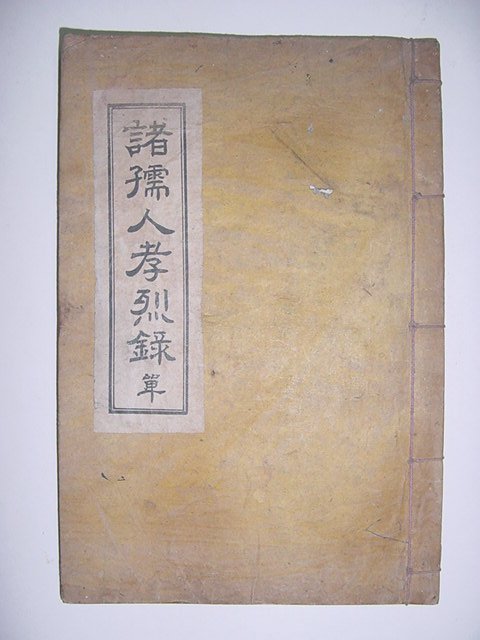 諸孺人孝烈錄 單